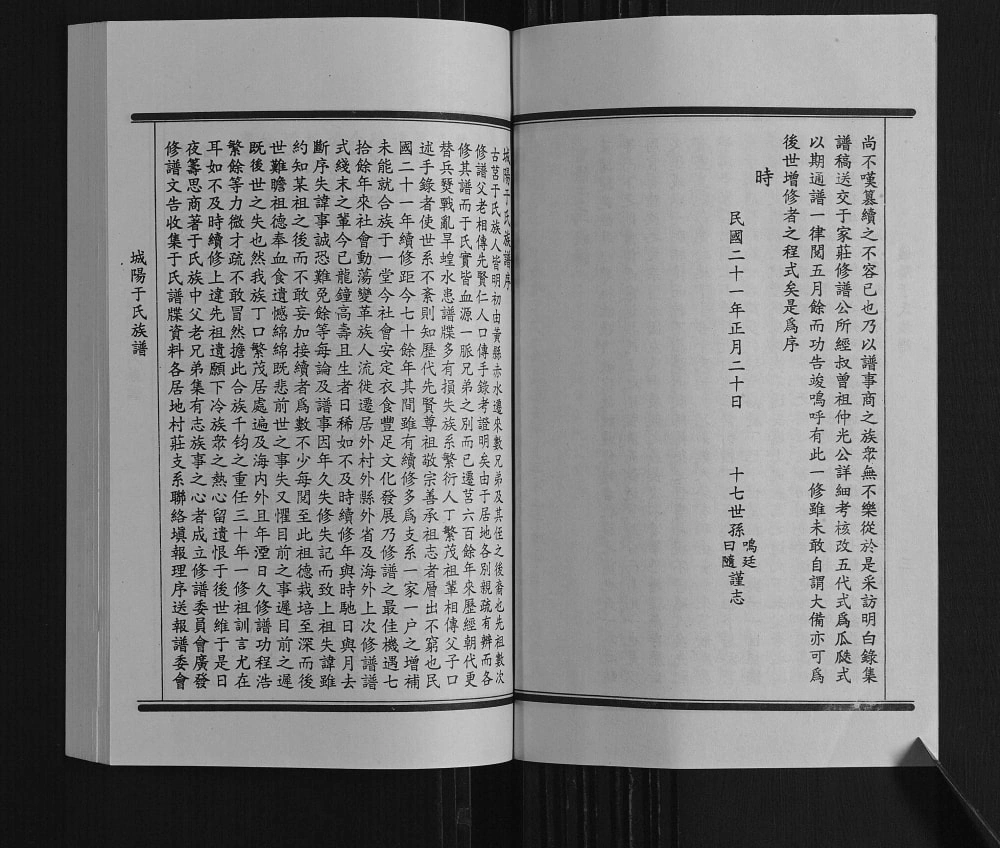 尚不嘆纂續之不容已也乃以譜事商之族眾無不樂從於是采訪明白錄集
譜稿送交于家莊修譜公所經叔曾祖仲光公詳細考核改五代式爲瓜瓞式
以期通譜一律閱五月餘而功告竣嗚呼有此一修雖未敢自謂大備亦可爲
後世增修者之程式矣是爲序
時
民國二十一年正月二十日 十七世孫 鳴廷 曰隨 謹志
城陽于氏族譜序
古莒于氏族人皆明初由黃縣赤水遷來數兄弟及其侄之後裔也先祖數次
修譜父老相傳先賢仁人口傳手錄考證明矣由于居地各別親疏有辨而各
修其譜而于氏實皆血源一脈兄弟之別而已遷莒六百餘年來歷經朝代更
替兵燹戰亂旱蝗水患譜牒多有損失族系繁衍人丁繁茂祖輩相傳父子口
述手錄者使世系不紊則知歷代先賢尊祖敬宗善承祖志者層出不窮也民
國二十一年續修距今七十餘年其間雖有續修多爲支系一家一户之增補
未能就合族于一堂今社會安定衣食豐足文化發展乃修譜之最佳機遇七
拾餘年來社會動蕩變革族人流徙遷居外村外縣外省及海外上次修譜譜
式綫末之輩今已龍鐘高壽且生者日稀如不及時續修年與時馳日與月去
斷序失諱事誠恐難免餘等每論及譜事因年久失修失記而致上祖失諱雖
約知某祖之後而不敢妄加接續者爲數不少每閱至此祖德栽培至深而後
世難瞻祖德奉血食遺憾綿綿既悲前世之事失又懼目前之事遲目前之遲
既後世之失也然我族丁口繁茂居處遍及海内外且年湮日久修譜功程浩
繁餘等力微才疏不敢冒然擔此合族千鈞之重任三十年一修祖訓言尤在
耳如不及時續修上違先祖遺願下冷族眾之熱心留遺恨于後世維于是日
夜籌思商著于氏族中父老兄弟集有志族事之心者成立修譜委員會廣發
修譜文告收集于氏譜牒資料各居地村莊支系聯絡填報理序送報譜委會
城陽于氏族譜